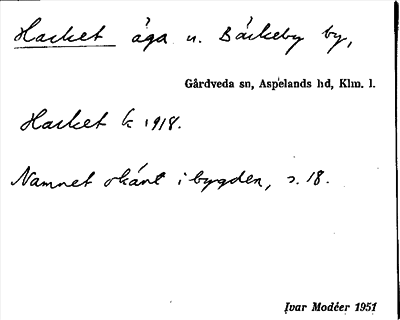 Hasket äga u. Bäckeby by,
Gårdveda sn, Aspelands hd, Klm. l.
Hasket k 1918.
Namnet okänt i bygden, s. 18.
Ivar Modéer 1951